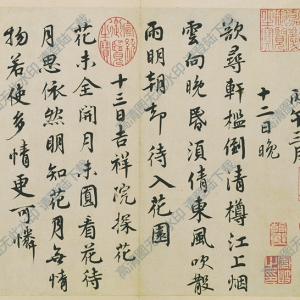 午三月
十二日晚
欲尋軒檻倒清樽江上烟
雲向晚昏須倩東風吹散
雨明朝却待入花園
十三日吉祥院探花
花未全開月未圓看花待
月思依然明知花月無情
物若使多情更可憐